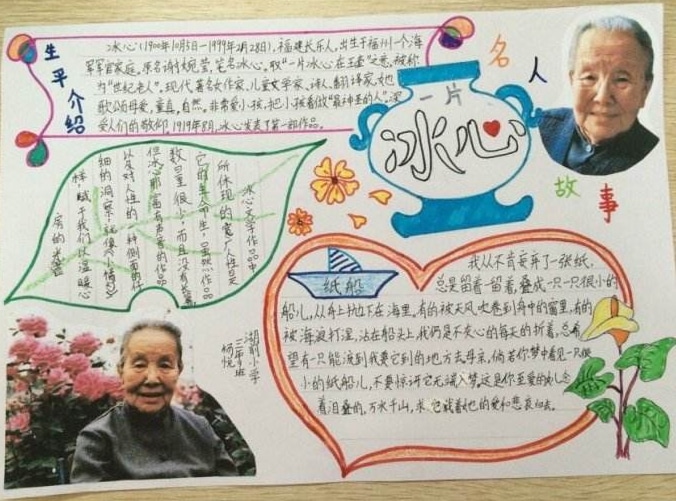 生平介绍
冰心(1900年10月5日—1999年2月28日),福建长乐人,出生于福州一个海
军军官家庭,原名谢婉莹,笔名冰心,取“一片冰心在玉壶”之意,被称
为“世纪老人”。现代著名女作家、儿童文学家、诗人、翻译家,她
歌颂母爱,童真,自然,非常爱小孩,把小孩看做“最神圣的人”,深
受人们的敬仰,1919年8月,冰心发表了第一篇作品。
一片
冰心
名人
故事
冰心文学作品中
所体现的宽广人性是
它的生命,虽然作品
数量很小,而且没有
但冰心那富有声音的作品
以及对人性的一种侧面的
细的洞察,就像冰心
样,赋予我们以温暖心
房的光芒
纸船
我从不肯妄弃了一张纸,
总是留着—留着,叠成一只一只很小的
船儿,从舟上抛下在海里,有的被天风吹卷到舟中的窗里,有的
被海浪打湿,沾在船头上,我仍是不灰心的每天的折着,总希
望有一只能流到我要它到的地方去,母亲,倘若你梦中看见一只很
小的纸船儿,不要惊讶它无端入梦,这是你至爱的女儿含
着泪叠的,万水千山,求它载着她的爱和悲哀归去。
湖前小学
杨悦